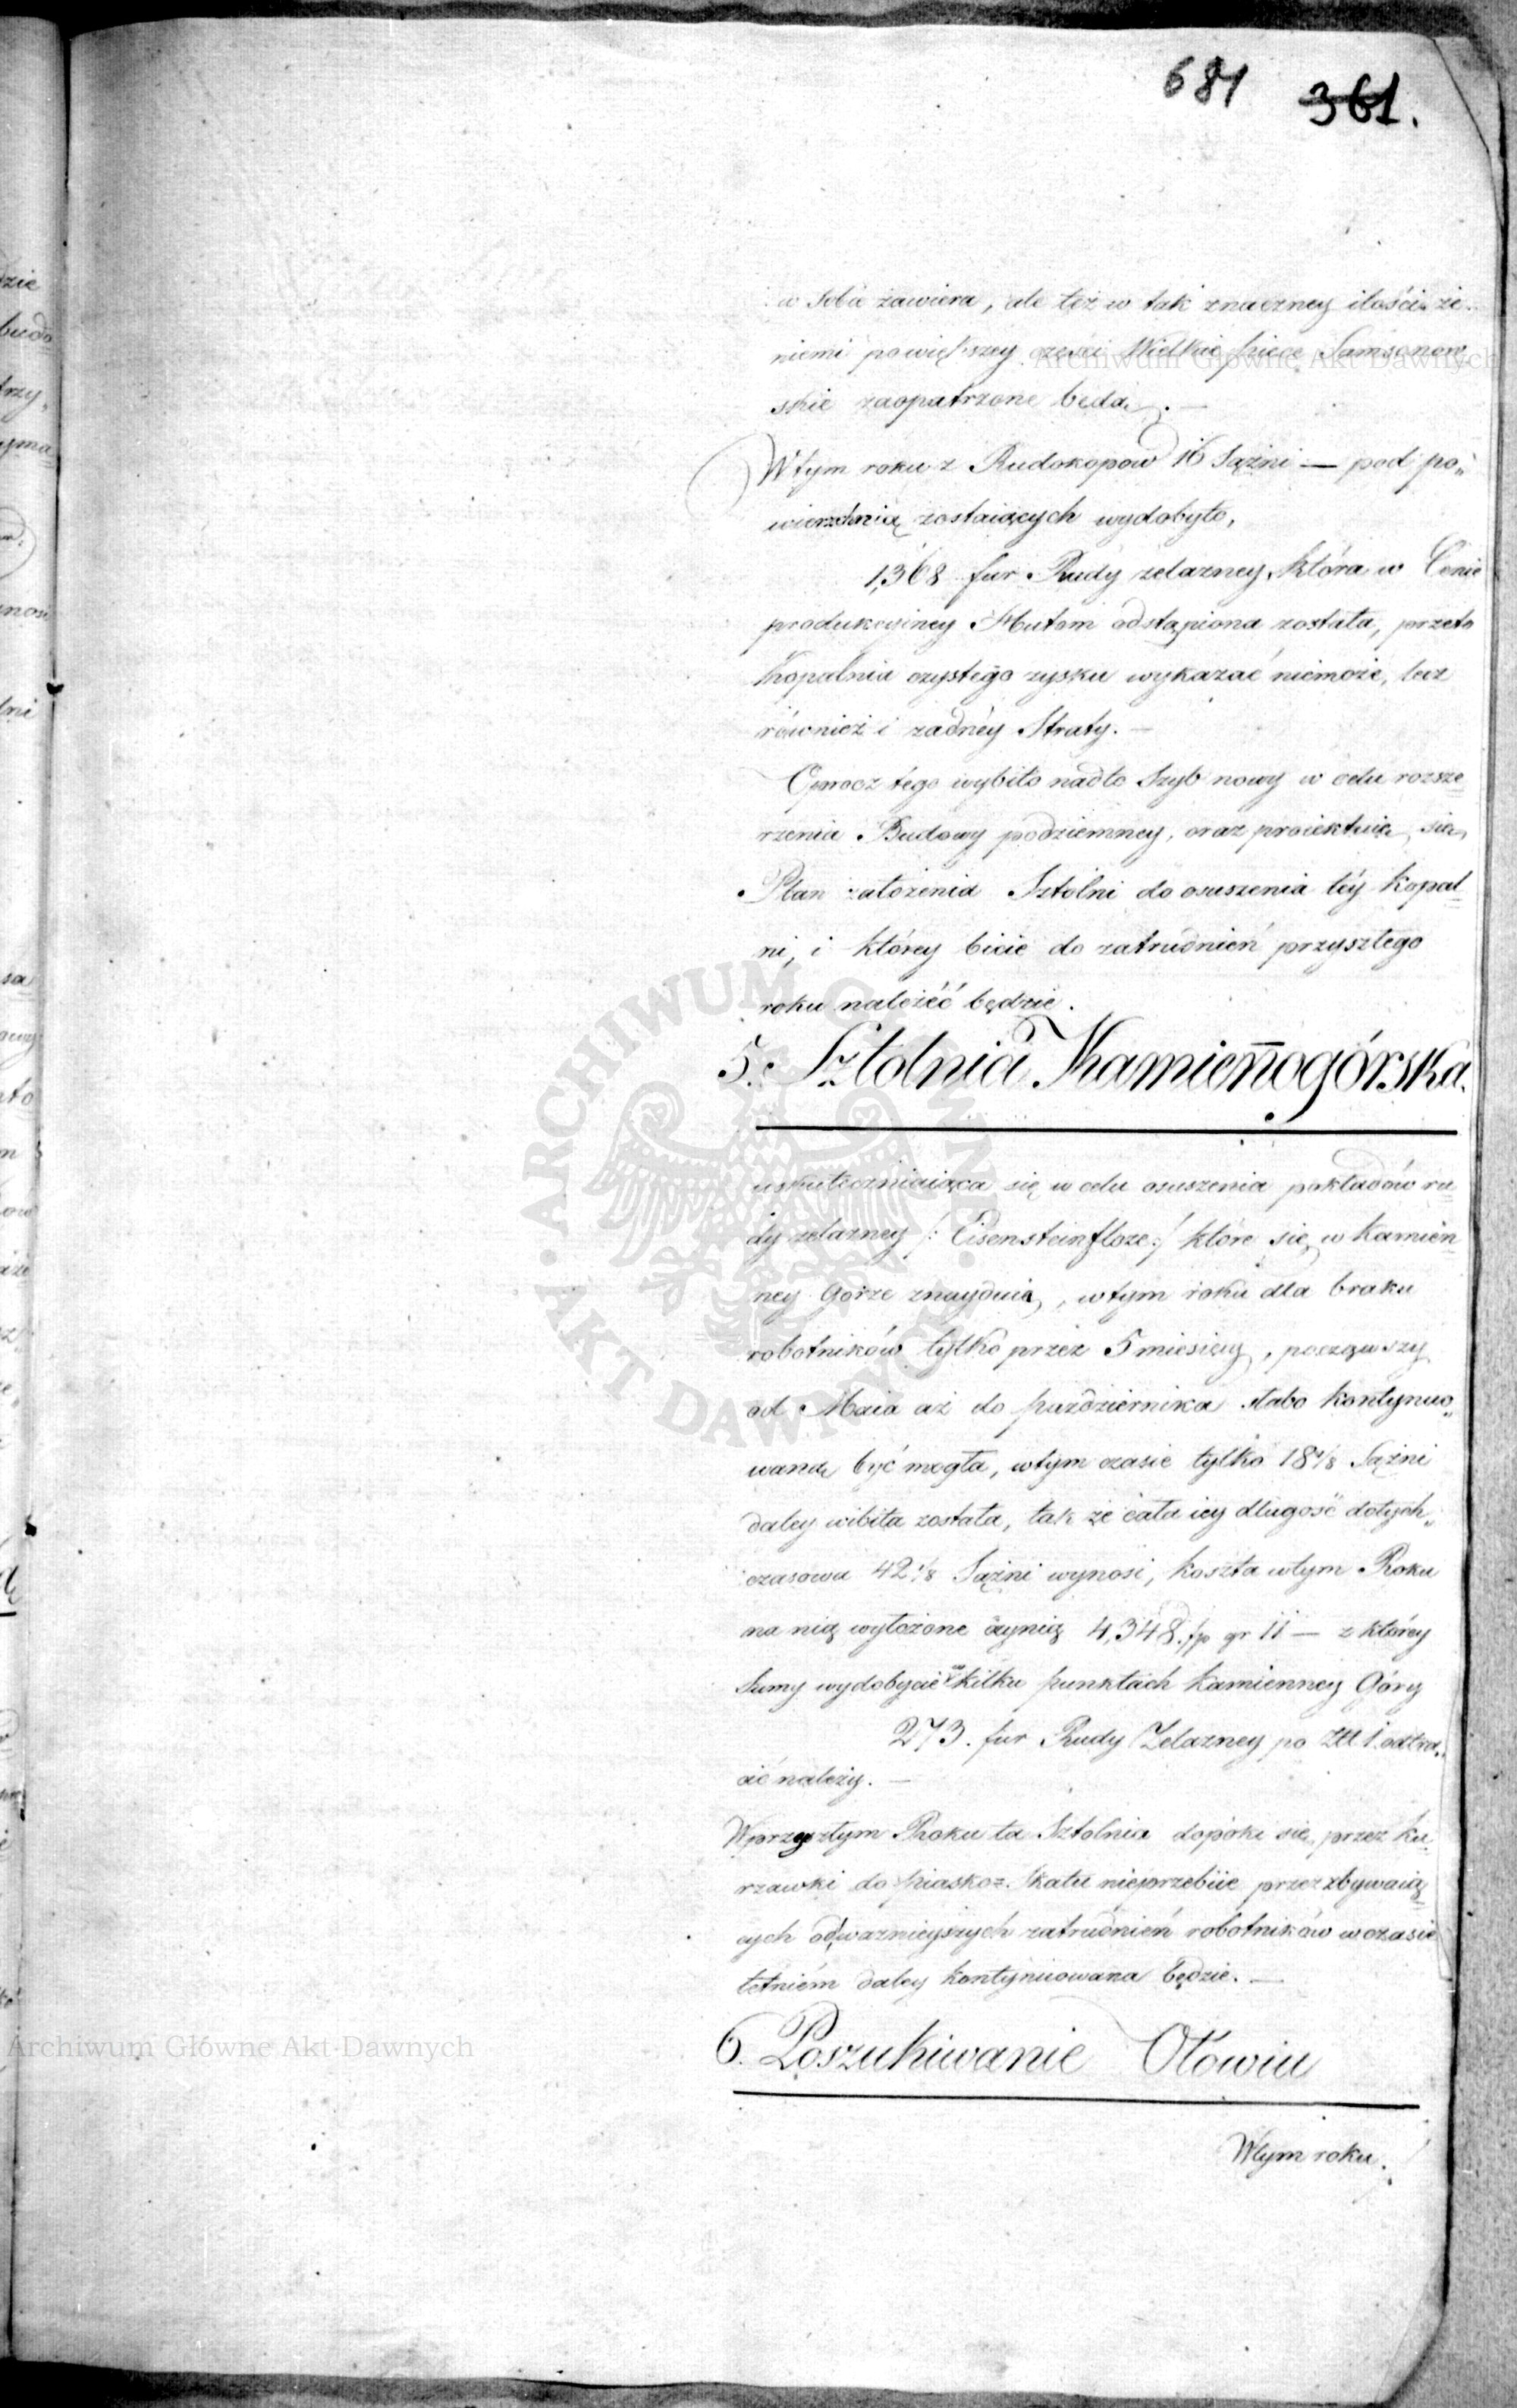 681 361.
w sobie zawiera, ale też w tak znaczney ilości że
niemi powiększey części Wielkie piece Samsonow
skie zaopatrzone będą. —
W tym roku z Rudokopow 16 Sążni — pod po„
wierzchnią zostaiących wydobyto,
1,368 fur Rudy żelazney, która w Cenie
produkcyiney Hutom odstąpiona została, przeto
Kopalnia czystego zysku wykazać niemoże, lecz
również i żadnéy Straty. —
Oprocz tego wybito nadto Szyb nowy w celu rozsze
rzenia Budowy podziemney, oraz proiektuie się
Plan założenia Sztolni do osuszenia téy Kopal
ni, i którey bicie do zatrudnień przyszłego
roku należéć będzie.
5. Sztolnia Kamiennogórska.
uskuteczniaiąca się w celu osuszenia pokładów ru
dy żelazney /: Eisensteinfloze :/ które się w Kamien
ney Górze znayduią, w tym roku dla braku
robotników tylko przez 5 miesięcy, począwszy
od Maia aż do października słabo kontynuo„
waną być mogła, w tym czasie tylko 18 1/8 Sążni
daley wibita została, tak że cała iey długość dotych„
czasowa 42 1/8 Sążni wynosi, koszta w tym Roku
na nią wyłożone czynią 4,348. fp gr 11 — z którey
Sumy wydobycie w kilku punktach Kamienney Góry
273. fur Rudy Żelazney po Złł 1. odtrą„
cić należy. —
W przyszłym Roku ta Sztolnia dopóki się przez ku
rzawki do piaskoz. Skału nieprzebiie przez zbywaią
cych odważnieyszych zatrudnień robotników w czasie
letniém daley kontynuowana będzie. —
6. Poszukiwanie Ołowiu
W tym roku.
Archiwum Główne Akt Dawnych
ARCHIWUM GŁÓWNE AKT DAWNYCH
Archiwum Główne Akt Dawnych